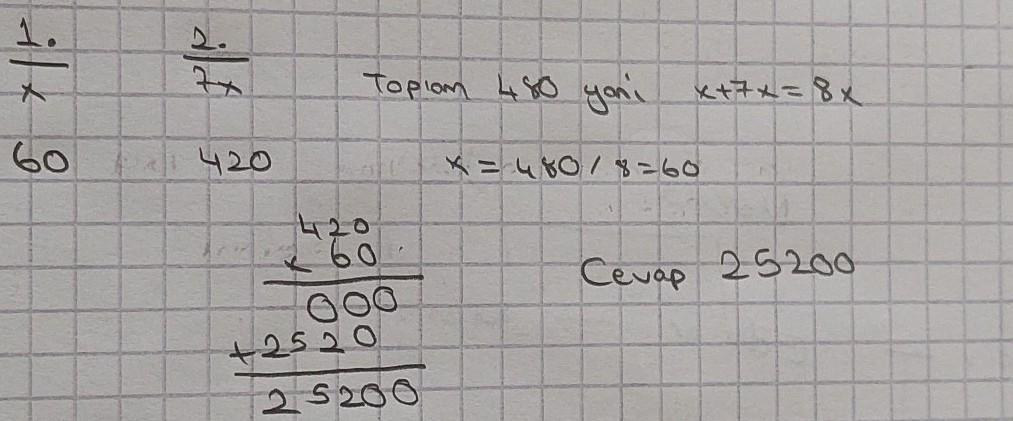 1. 2.
x 7x Toplam 480 yani x+7x=8x
60 420 x=480/8=60
420
x 60
000
+2520
25200
Cevap 25200